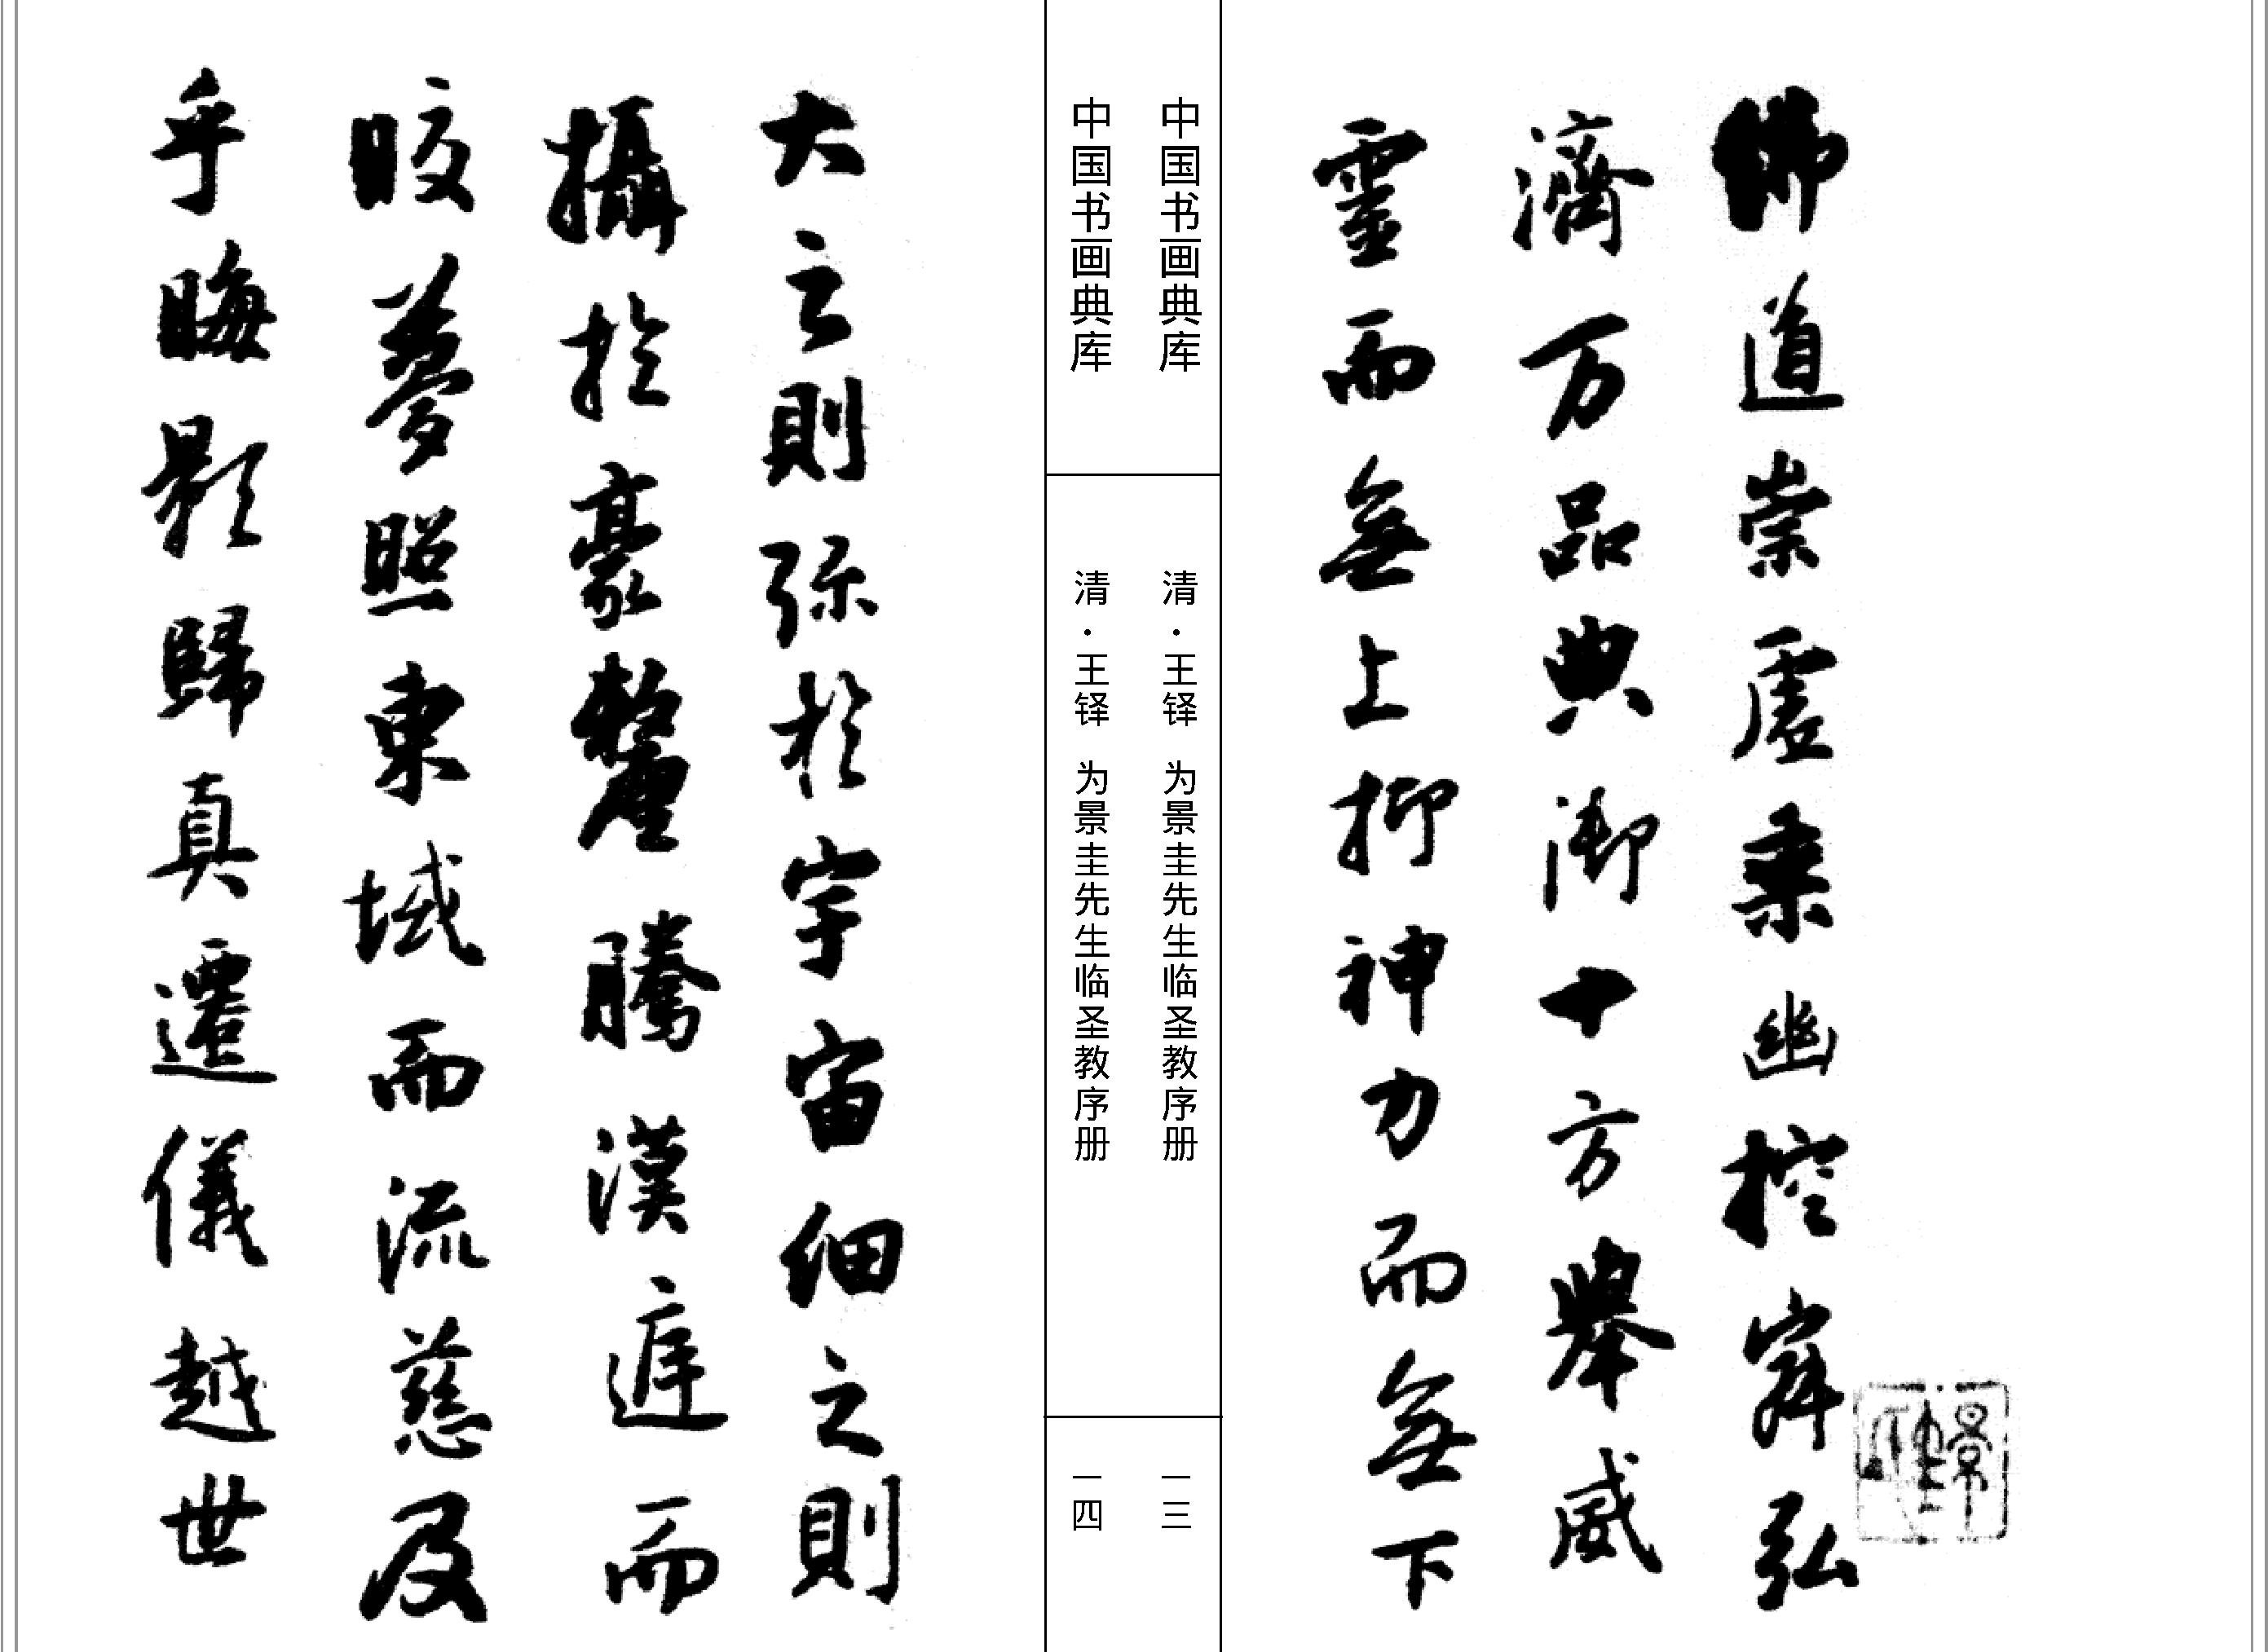 佛道崇虛乘幽控寂弘
濟万品典御十方舉威
靈而無上抑神力而無下
中国书画典库
清·王铎 为景圭先生临圣教序册
一三
中国书画典库
清·王铎 为景圭先生临圣教序册
一四
大之則弥於宇宙細之則
攝於豪釐騰漢庭而
皎夢照東域而流慈及
乎晦影歸真遷儀越世